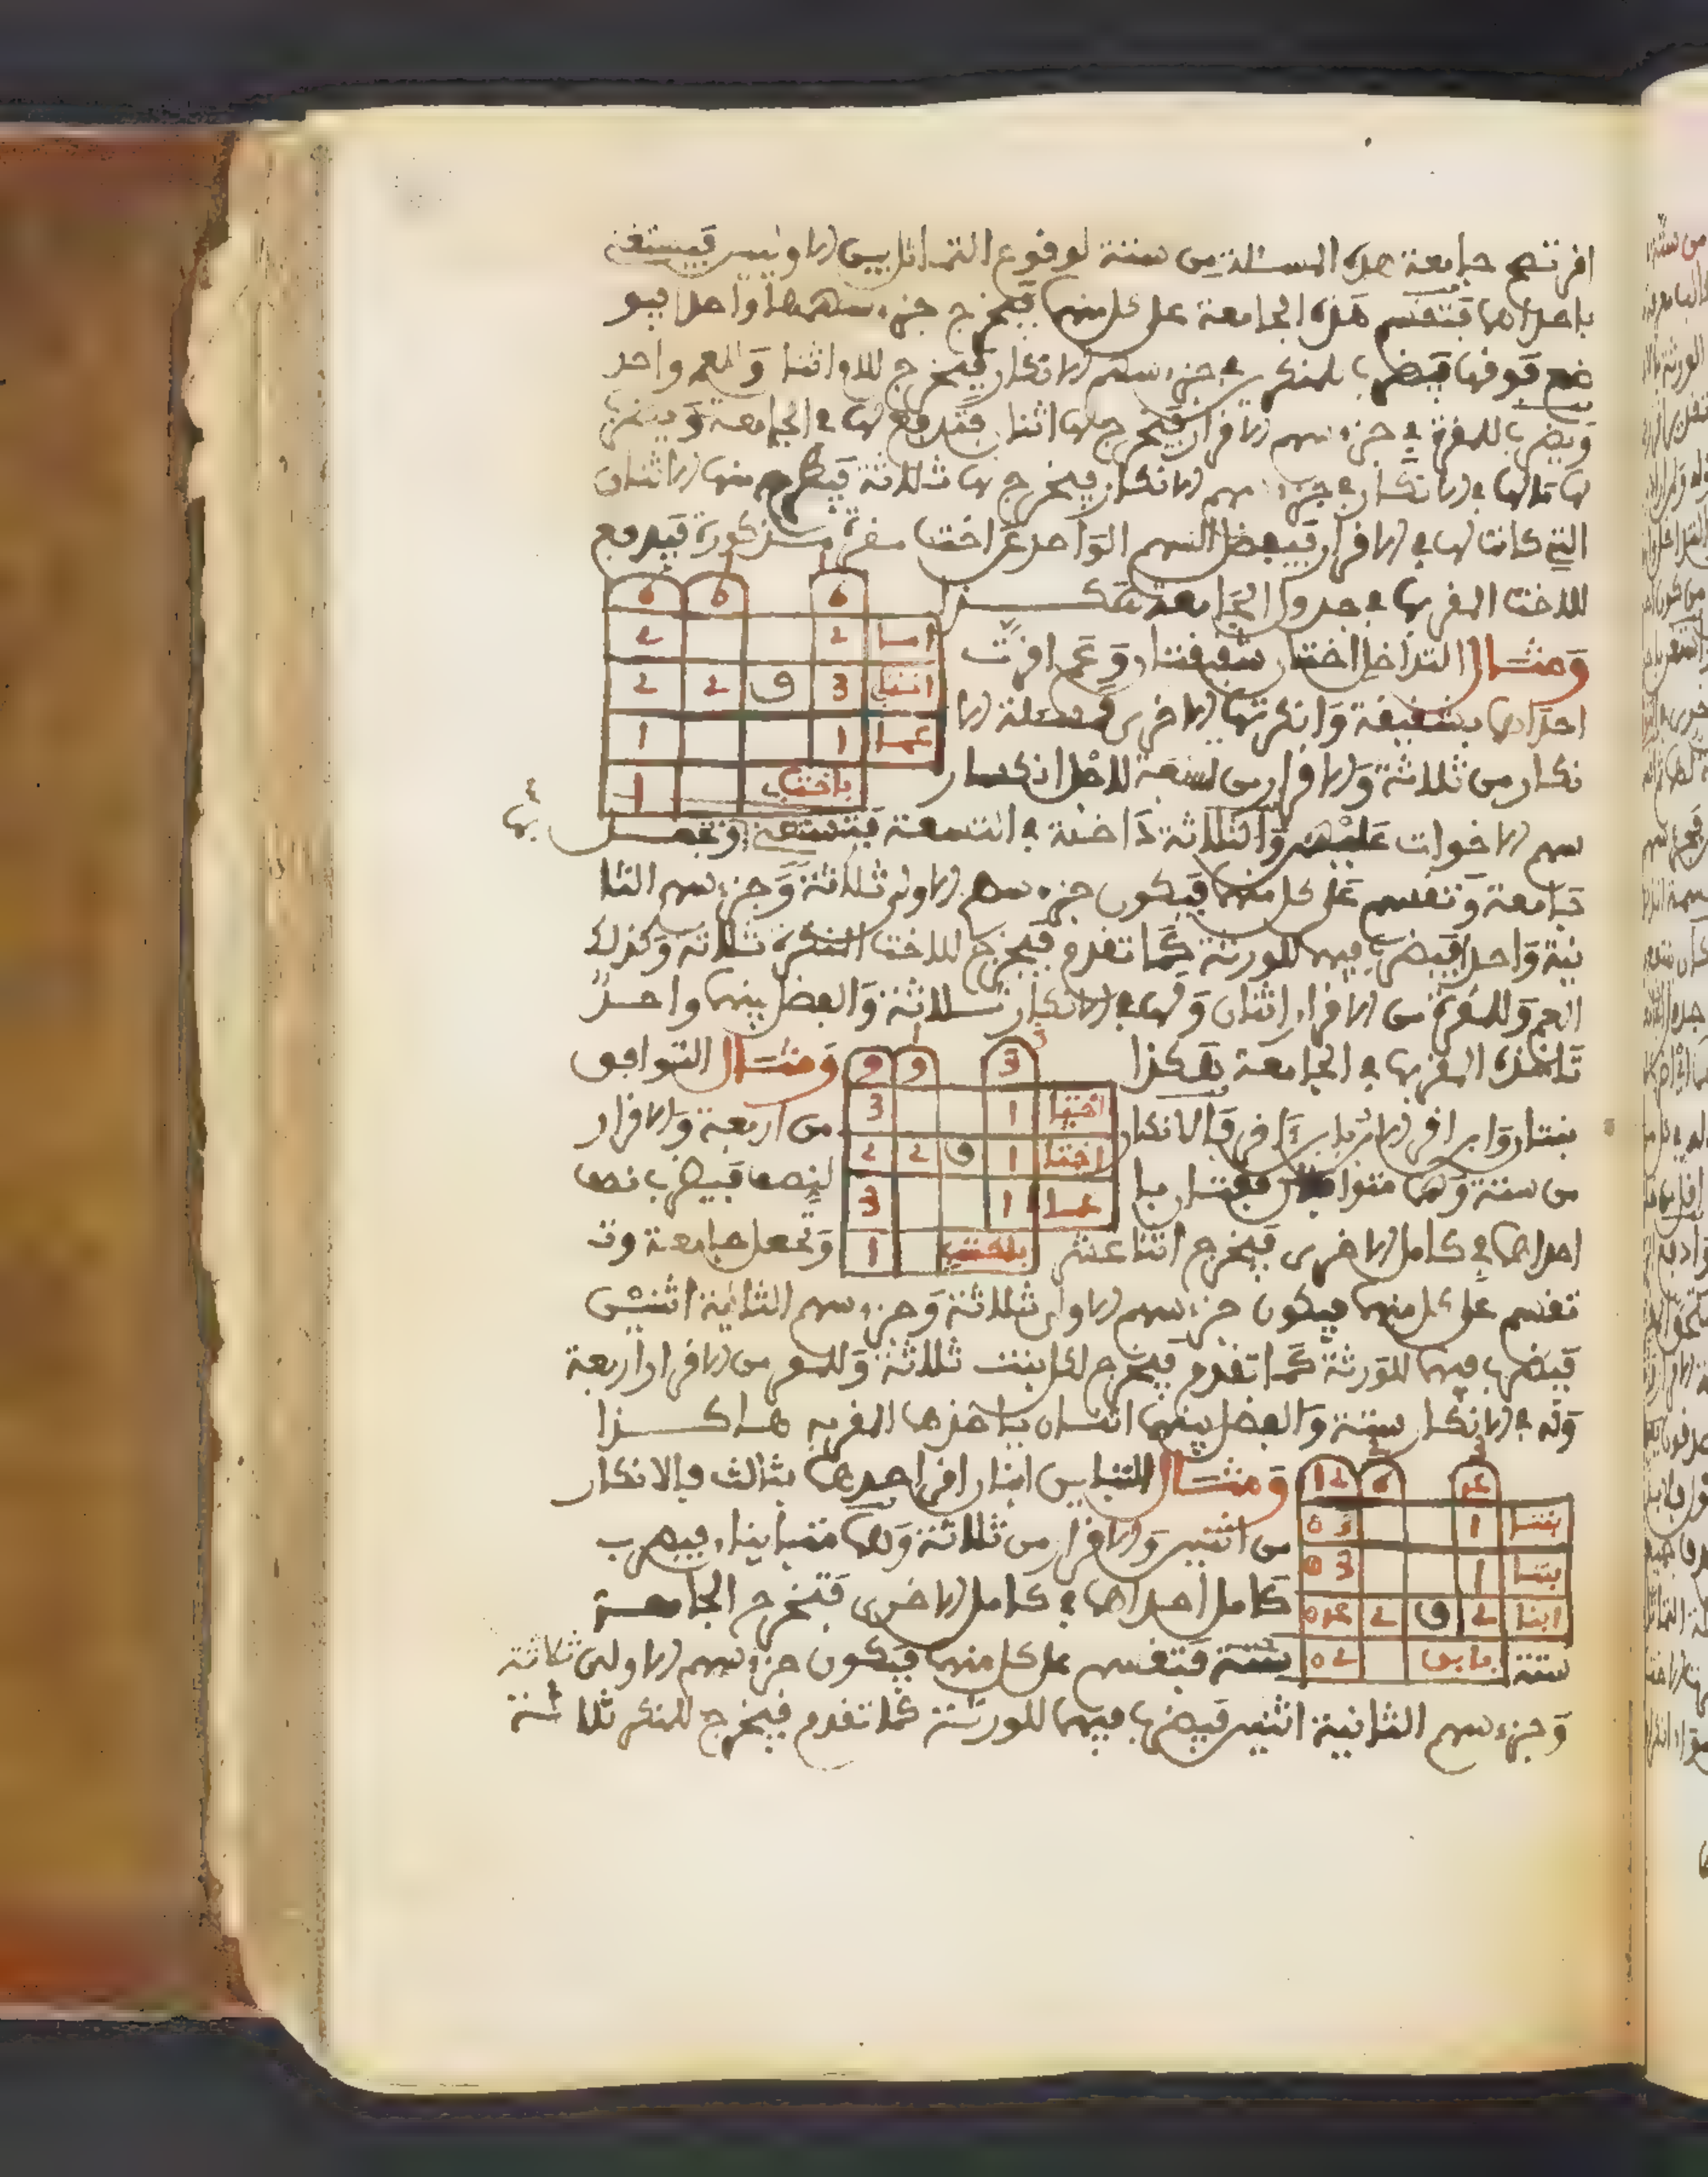 اقرت تصح جامعة هذه المسئلة من ستة لوقوع التماثل بين الاوليين فيستغنى
باحداهما فتقسم هذه الجامعة على كل منهما فيخرج جزء سهمها واحدا فيو
ضع فوقها فيضرب للمنكر في جزء سهم الانكار فيخرج للام اثنان وللعم واحد
ويضرب للمقرة في جزء سهم الاقرار فيخرج لها اثنان فتدفع لها في الجامعة ويضرب
لها مالها في الانكار في جزء سهم الانكار فيخرج لها ثلاثة فيطرح منها الاثنان
التي كانت لها في الاقرار فيفضل السهم الواحد عن اخت مقرة مذكورة فيدفع
للاخت المقر بها في جدول الجامعة هكذا
6 6 6
2 2 اما
2 2 ق 3 اختا
1 1 عما
1 باخت
ومثال التداخل اختان شقيقتان وعم اقرت
احداهما بشقيقة وانكرتها الاخرى فمسئلة الا
نكار من ثلاثة والاقرار من تسعة لاجل انكسار
سهم الاخوات عليهن والثلاثة داخلة في التسعة فتستغنى وتجعل بها
جامعة وتقسم على كل منهما فيكون جزء سهم الاولى ثلاثة وجزء سهم الثا
نية واحدا فيضرب فيهما للورثة كما تقدم فيخرج للاخت المنكرة ثلاثة وكذلك
العم وللمقرة من الاقرار اثنان ولها في الانكار ثلاثة والفضل بينهما واحد
تاخذه المقر بها في الجامعة هكذا ومثال التوافق
9 9 3
3 1 اختا
2 2 ق 1 اختا
3 1 عما
1 باخت
بنتان وابن اقر الابن بابن اخر فالانكار من اربعة والاقرار
من ستة وهما متوافقتان بالنصف فيضرب نصف
احداهما في كامل الاخرى فيخرج اثنا عشر وتجعل جامعة وتـ
تقسم على كل منهما فيكون جزء سهم الاولى ثلاثة وجزء سهم الثانية اثنين
فيضرب فيهما للورثة كما تقدم فيخرج لكل بنت ثلاثة وللمقر من الاقرار اربعة
وله في الانكار ستة والفضل بينهما اثنان ياخذها المقر به هاكذا
ومثال التباين ابنان اقر احدهما بثالث فالانكار
من اثنين والاقرار من ثلاثة وهما متباينان فيضرب
كامل احداهما في كامل الاخرى فتخرج الجامعة
12 6
03 1 بنتا
03 1 بنتا
2 ق 2 ابنا
02 بابن
ستة فتقسم على كل منهما فيكون جزء سهم الاولى ثلاثة
وجزء سهم الثانية اثنين فيضرب فيهما للورثة كما تقدم فيخرج للمنكر ثلاثة